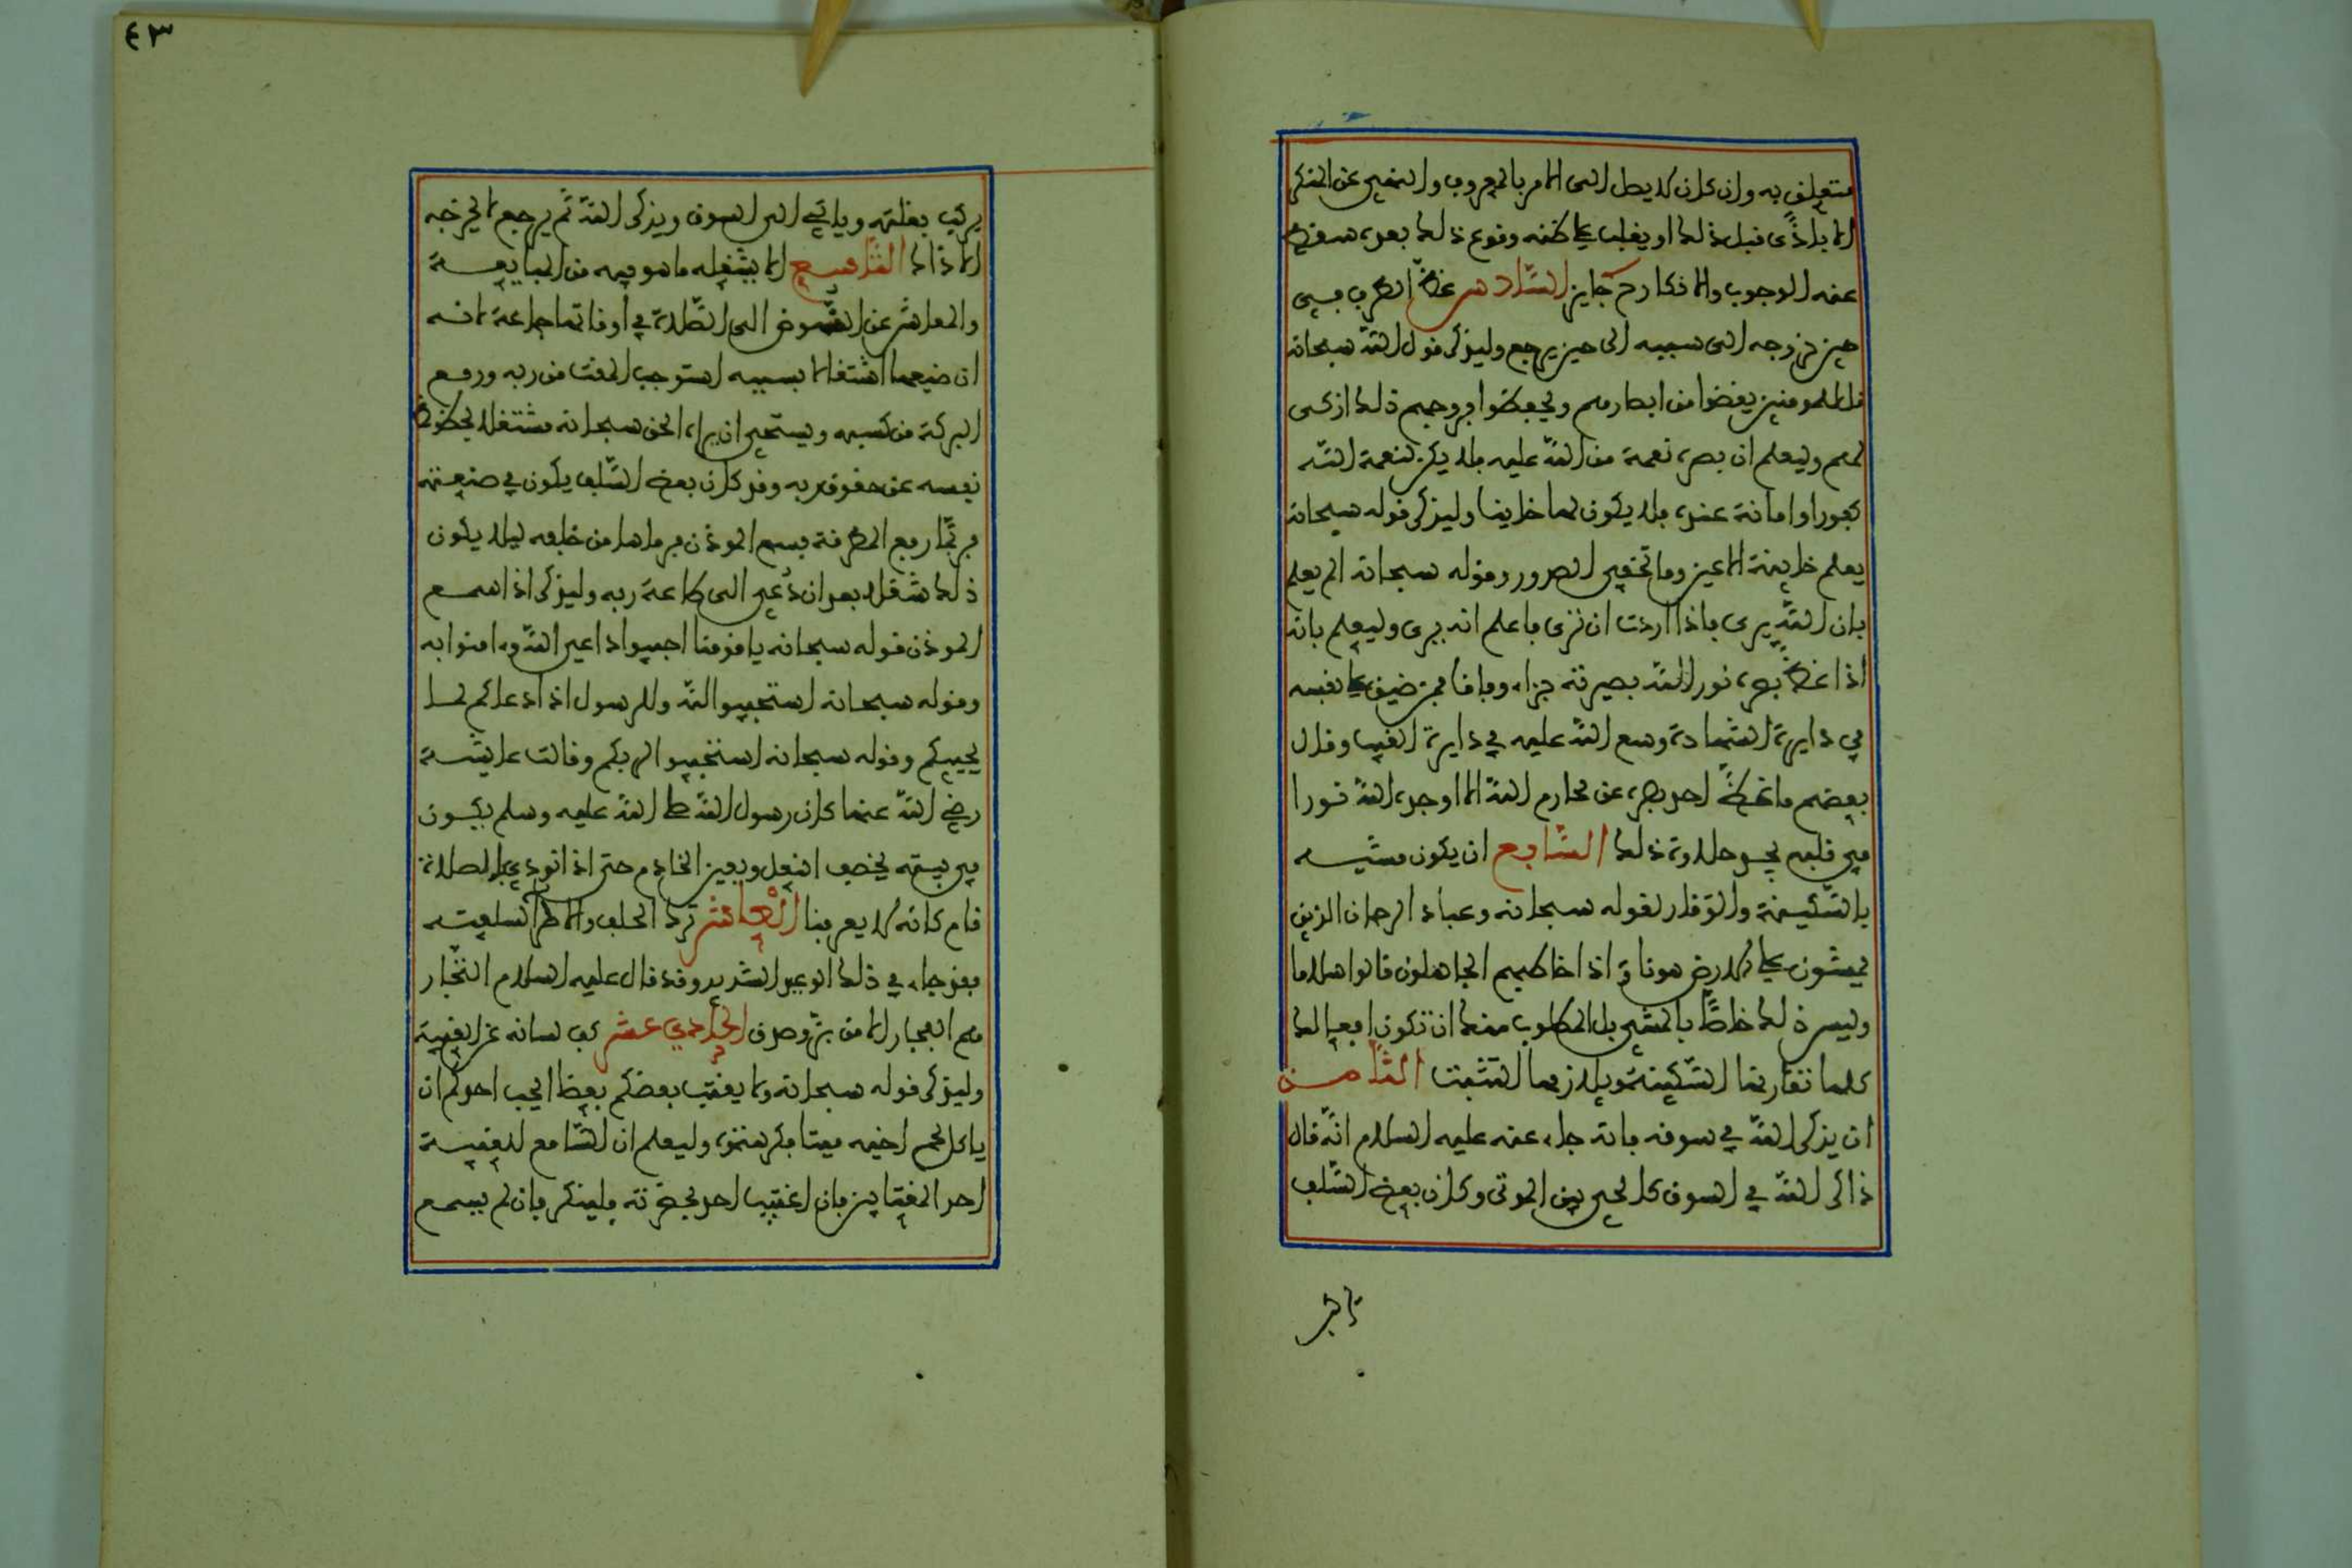 متعلق به وان كان لا يصل الى الامر بالمعروف والنهي عن المنكر
الا باذى قبل ذلك او يغلب على ظنه وقوع ذلك بعده سقط
عنه الوجوب والانكار ح جايز السادس غض الطرف في
حين خروجه الى سببه الى حين يرجع وليذكر قول الله سبحانه
قل للمومنين يغضوا من ابصارهم ويحفظوا فروجهم ذلك ازكى
لهم وليعلم ان بصره نعمة من الله عليه فلا يكن لنعمة الله
كفورا وامانة عنده فلا يكون لها خاينا وليذكر قوله سبحانه
يعلم خاينة الاعين وما تخفي الصدور وقوله سبحانه الم يعلم
بان الله يرى فاذا اردت ان ترى فاعلم انه يرى وليعلم بانه
اذا غض بصره نور الله بصيرته جزاء وفاقا فمن ضيق على نفسه
في دايرة الشهادة وسع الله عليه في دايرة الغيب وقال
بعضهم ما غض احد بصره عن محارم الله الا اوجد الله نورا
في قلبه يجد حلاوة ذلك السابع ان يكون مشيه
بالسكينة والوقار لقوله سبحانه وعباد الرحمان الذين
يمشون على الارض هونا واذا خاطبهم الجاهلون قالوا سلاما
وليس ذلك خاصا بالمشي بل المطلوب منك ان تكون افعالك
كلها تقارنها السكينة ويلازمها التثبت الثامن
ان يذكر الله في سوقه فانه جاء عنه عليه السلام انه قال
ذاكر الله في السوق كالحي بين الموتى وكان بعض السلف
يركب
٤٣
يركب بغلته وياتي الى السوق ويذكر الله ثم يرجع لا يخرجه
الا ذاك التاسع الا يشغله ما هو فيه من المبايعة
والمعاش عن النهوض الى الصلاة في اوقاتها جماعة لانه
ان ضيعها اشتغالا بسببه استوجب المقت من ربه ورفع
البركة من كسبه ويستحي ان يراه الحق سبحانه مشتغلا بحظوظ
نفسه عن حقوق ربه وقد كان بعض السلف يكون في صنعته
فربما رفع المطرقة فسمع الموذن فرماها من خلفه ليلا يكون
ذلك شغلا بعد ان دعي الى طاعة ربه وليذكر اذا سمع
الموذن قوله سبحانه يا قومنا اجيبوا داعي الله وءامنوا به
وقوله سبحانه استجيبوا لله وللرسول اذا دعاكم لما
يحييكم وقوله سبحانه استجيبوا لربكم وقالت عايشة
رضي الله عنها كان رسول الله صلى الله عليه وسلم يكون
في بيته يخصف النعل ويعين الخادم حتى اذا نودي للصلاة
قام كانه لا يعرفنا العاشر ترك الحلف والاطراء لسلعته
فقد جاء في ذلك الوعيد الشديد وقد قال عليه السلام التجار
هم الفجار الا من بر وصدق الحادي عشر كف لسانه عن الغيبة
وليذكر قوله سبحانه ولا يغتب بعضكم بعضا ايحب احدكم ان
ياكل لحم اخيه ميتا فكرهتموه وليعلم ان السامع للغيبة
احد المغتابين فان اغتيب احد بحضرته فلينكر فان لم يسمع